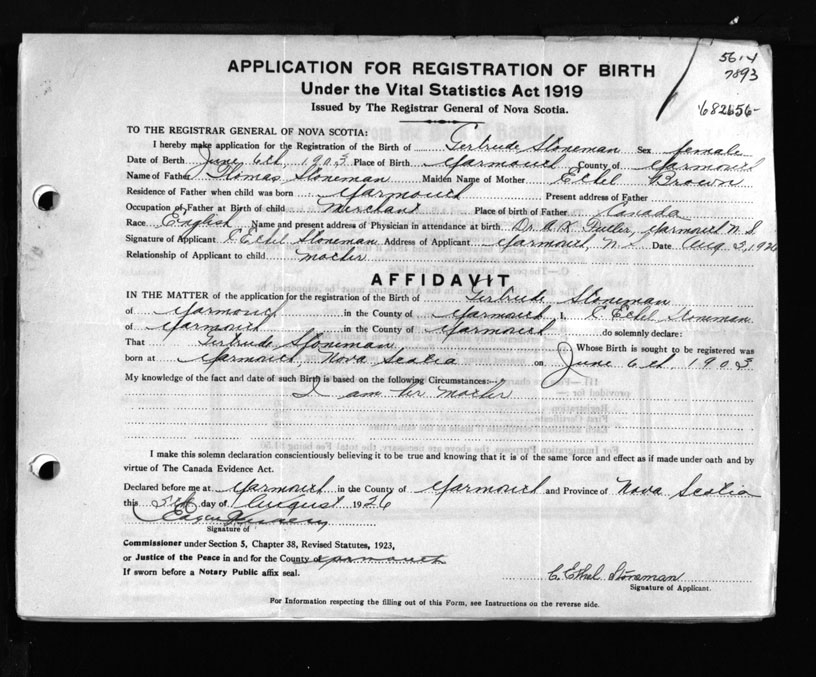 5614
7893
682656-
APPLICATION FOR REGISTRATION OF BIRTH
Under the Vital Statistics Act 1919
Issued by The Registrar General of Nova Scotia.
TO THE REGISTRAR GENERAL OF NOVA SCOTIA:
I hereby make application for the Registration of the Birth of Gertrude Stoneman Sex female
Date of Birth June 6th, 1903 Place of Birth Yarmouth County of Yarmouth
Name of Father Thomas Stoneman Maiden Name of Mother Ethel Brown
Residence of Father when child was born Yarmouth Present address of Father
Occupation of Father at Birth of child Merchant Place of birth of Father Canada
Race English Name and present address of Physician in attendance at birth Dr. A.R. Fuller, Yarmouth N.S
Signature of Applicant C Ethel Stoneman Address of Applicant Yarmouth, N.S. Date Aug 5, 1926
Relationship of Applicant to child mother
AFFIDAVIT
IN THE MATTER of the application for the registration of the Birth of Gertrude Stoneman
of Yarmouth in the County of Yarmouth I, C Ethel Stoneman
of Yarmouth in the County of Yarmouth do solemnly declare:
That Gertrude Stoneman Whose Birth is sought to be registered was
born at Yarmouth, Nova Scotia on June 6th, 1903
My knowledge of the fact and date of such Birth is based on the following Circumstances:—
I am her mother
I make this solemn declaration conscientiously believing it to be true and knowing that it is of the same force and effect as if made under oath and by
virtue of The Canada Evidence Act.
Declared before me at Yarmouth in the County of Yarmouth and Province of Nova Scotia
this 5th day of August 1926
Signature of
Commissioner under Section 5, Chapter 38, Revised Statutes, 1923,
or Justice of the Peace in and for the County of Yarmouth
If sworn before a Notary Public affix seal.
C. Ethel Stoneman
Signature of Applicant.
For Information respecting the filling out of this Form, see Instructions on the reverse side.